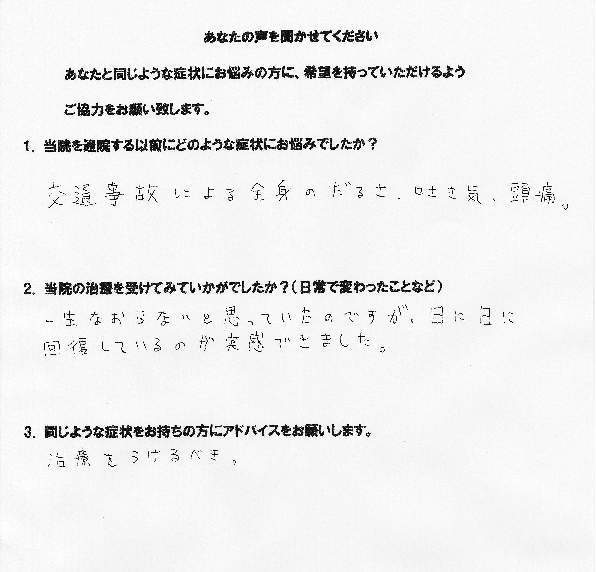 あなたの声を聞かせてください
あなたと同じような症状にお悩みの方に、希望を持っていただけるよう
ご協力をお願い致します。
1. 当院を通院する以前にどのような症状にお悩みでしたか？
交通事故による全身のだるさ、吐き気、頭痛。
2. 当院の治療を受けてみていかがでしたか？（日常で変わったことなど）
一生なおらないと思っていたのですが、日に日に
回復しているのが実感できました。
3. 同じような症状をお持ちの方にアドバイスをお願いします。
治療をうけるべき。